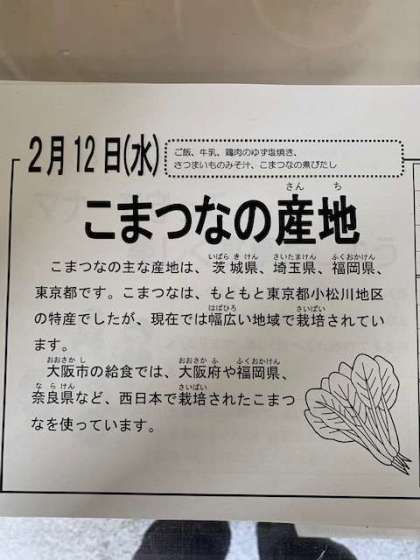 2月12日(水)
ご飯、牛乳、鶏肉のゆず塩焼き、
さつまいものみそ汁、こまつなの煮びたし
さん ち
こまつなの産地
いばら き けん さいたまけん ふくおかけん
こまつなの主な産地は、茨城県、埼玉県、福岡県、
東京都です。こまつなは、もともと東京都小松川地区
はばひろ さいばい
の特産でしたが、現在では幅広い地域で栽培されてい
ます。
おおさか し おおさか ふ ふくおかけん
大阪市の給食では、大阪府や福岡県、
な ら けん さいばい
奈良県など、西日本で栽培されたこまつ
なを使っています。